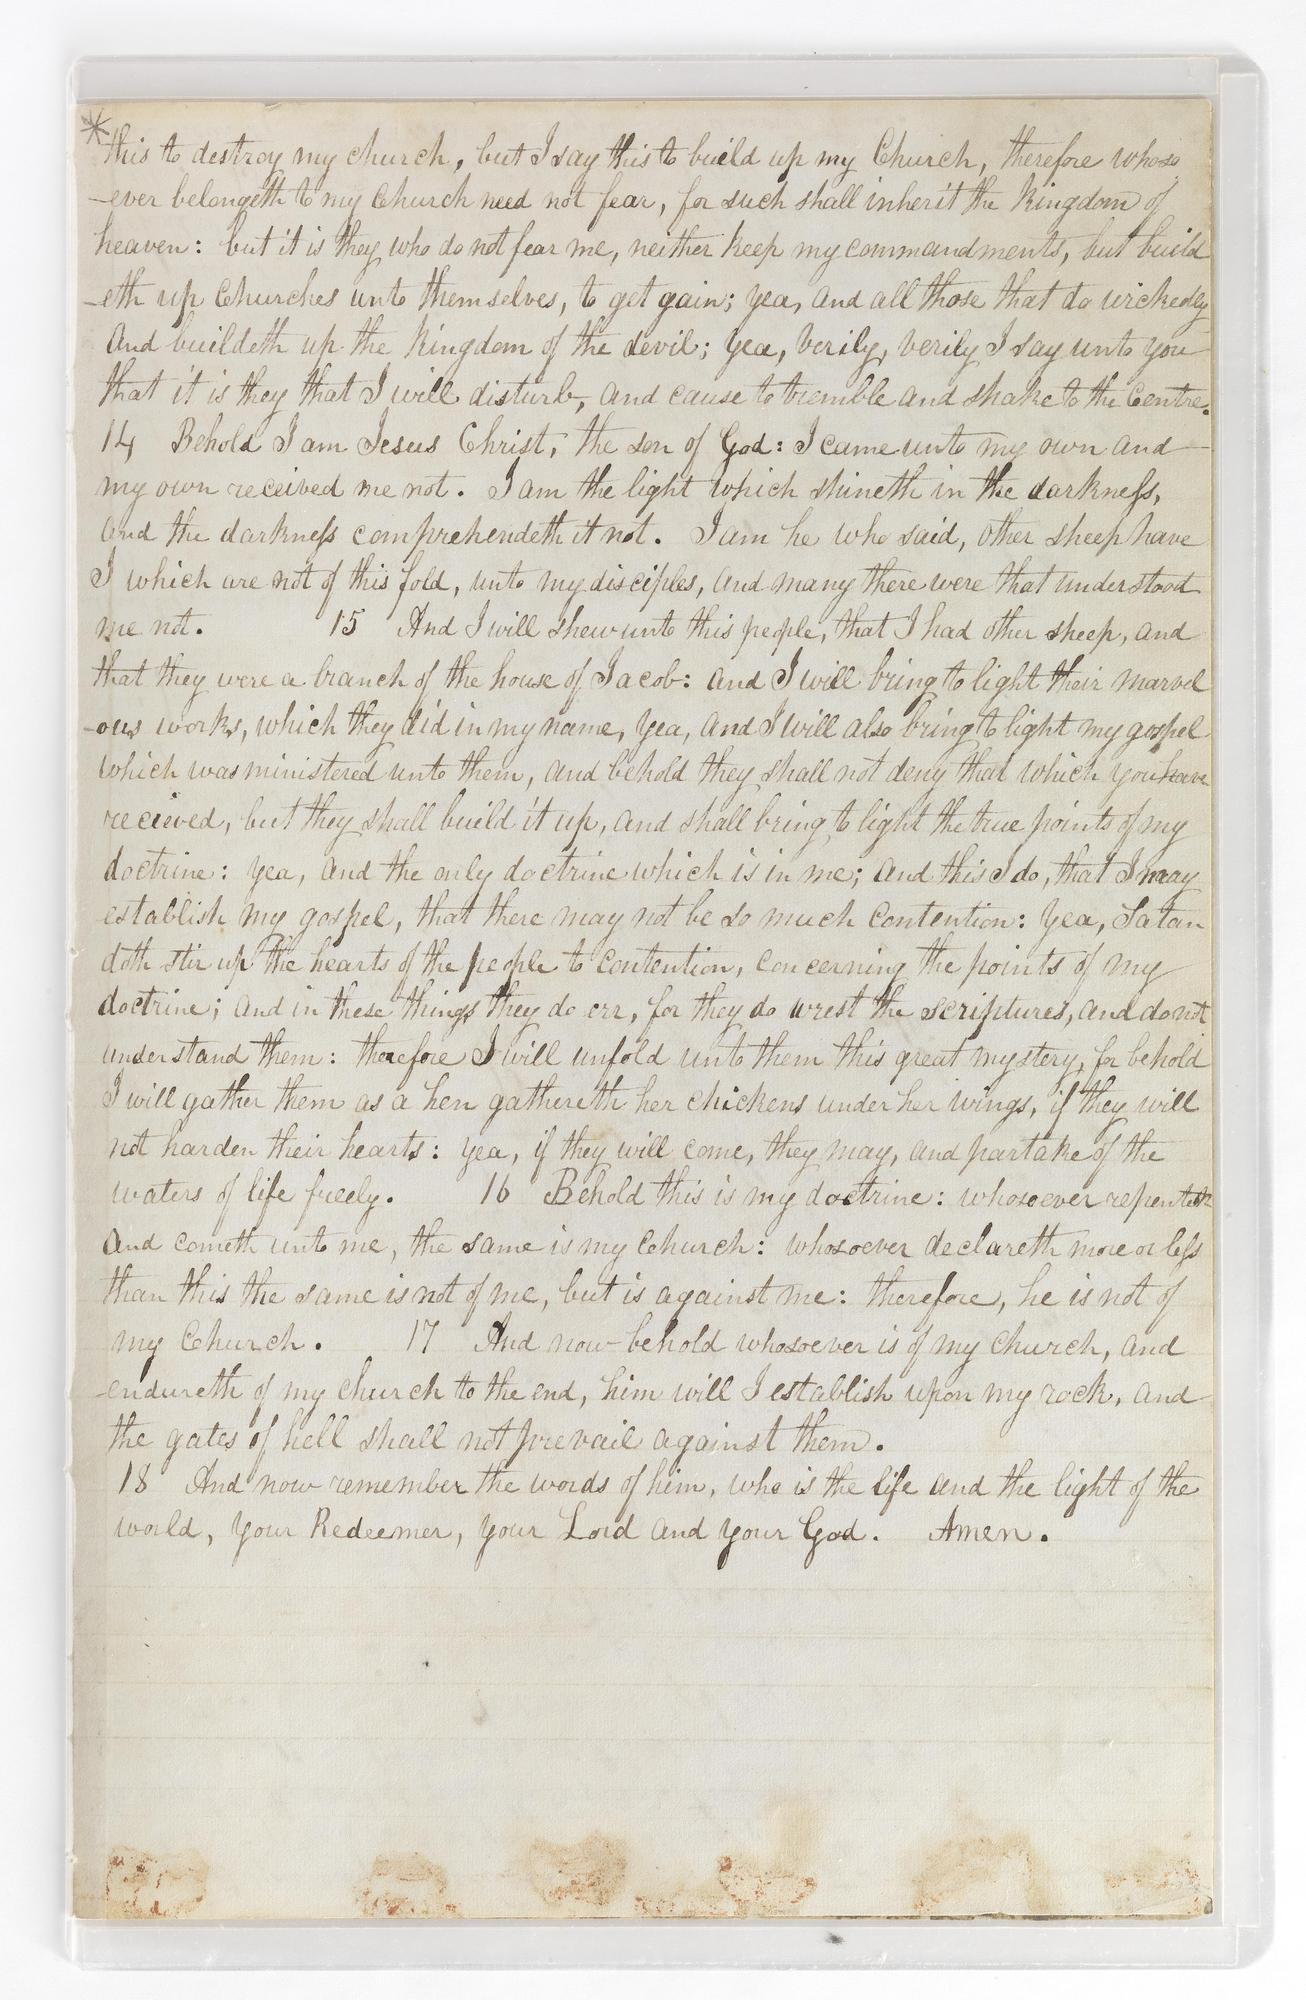 *this to destroy my church, but I say this to build up my Church, therefore whoso
-ever belongeth to my Church need not fear, for such shall inherit the Kingdom of
heaven: but it is they who do not fear me, neither keep my commandments, but build
-eth up Churches unto themselves, to get gain; yea, and all those that do wickedly
And buildeth up the Kingdom of the devil; yea, Verily, Verily I say unto you
that it is they that I will disturb, and cause to tremble and shake to the Centre.
14 Behold I am Jesus Christ, the son of God: I came unto my own and
my own received me not. I am the light which shineth in the darkneſs,
and the darkneſs comprehendeth it not. I am he who said, other sheep have
I which are not of this fold, unto my disciples, and many there were that understood
me not. 15 And I will shew unto this people, that I had other sheep, and
that they were a branch of the house of Jacob: and I will bring to light their marvel
-ous works, which they did in my name, yea, and I will also bring to light my gospel
which was ministered unto them, and behold they shall not deny that which you have
received, but they shall build it up, and shall bring to light the true points of my
doctrine: yea, and the only doctrine which is in me; and this I do, that I may
establish my gospel, that there may not be so much contention: yea, Satan
doth stir up the hearts of the people to contention, concerning the points of my
doctrine; and in these things they do err, for they do wrest the scriptures, and do not
understand them: therefore I will unfold unto them this great mystery, for behold
I will gather them as a hen gathereth her chickens under her wings, if they will
not harden their hearts: yea, if they will come, they may, and partake of the
waters of life freely. 16 Behold this is my doctrine: whosoever repenteth
and cometh unto me, the same is my Church: whosoever declareth more or leſs
than this the same is not of me, but is against me: therefore, he is not of
my Church. 17 And now behold whosoever is of my church, and
endureth of my church to the end, him will I establish upon my rock, and
the gates of hell shall not prevail against them.
18 And now remember the words of him, who is the life and the light of the
world, your Redeemer, your Lord and your God. Amen.